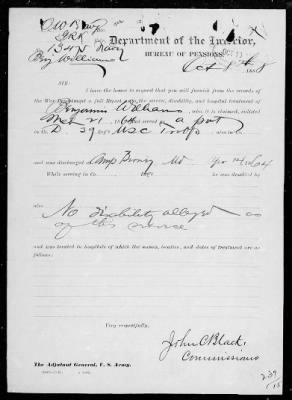 Department of the Interior,
BUREAU OF PENSIONS,
Oct 1888
Navy
Benj Williams
SIR:
I have the honor to request that you will furnish from the records of
the War Department a full Report as to the service, disability, and hospital treatment of
Benjamin Williams, who it is claimed, enlisted
21 1864 a pvt
in Co. D. 39 USC Troops
and was discharged at Camp Md
While serving in Co. he was disabled by
also
No disability alleged as
of this service
and was treated in hospitals of which the names, location, and dates of treatment are as
follows:
Very respectfully,
John C Black,
Commissioner
The Adjutant General, U. S. Army.